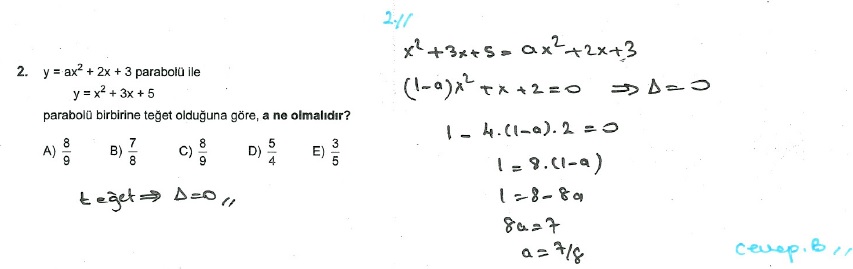 2. y = ax² + 2x + 3 parabolü ile
y = x² + 3x + 5
parabolü birbirine teğet olduğuna göre, a ne olmalıdır?
A) 8/9 B) 7/8 C) 8/9 D) 5/4 E) 3/5
teğet ⇒ Δ=0 //
2.//
x²+3x+5 = ax²+2x+3
(1-a)x² + x + 2 = 0 ⇒ Δ = 0
1 - 4.(1-a).2 = 0
1 = 8.(1-a)
1 = 8 - 8a
8a = 7
a = 7/8
cevap.B //